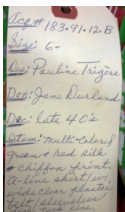 Acc# 183.91.12.B
Size: 6-
Des: Pauline Trigère
Don: Jane Durland
Dec: late 40's
Item: Multi-colored
green & red silk
chiffon print.
A-line skirt w/
wide clear plastic
belt/